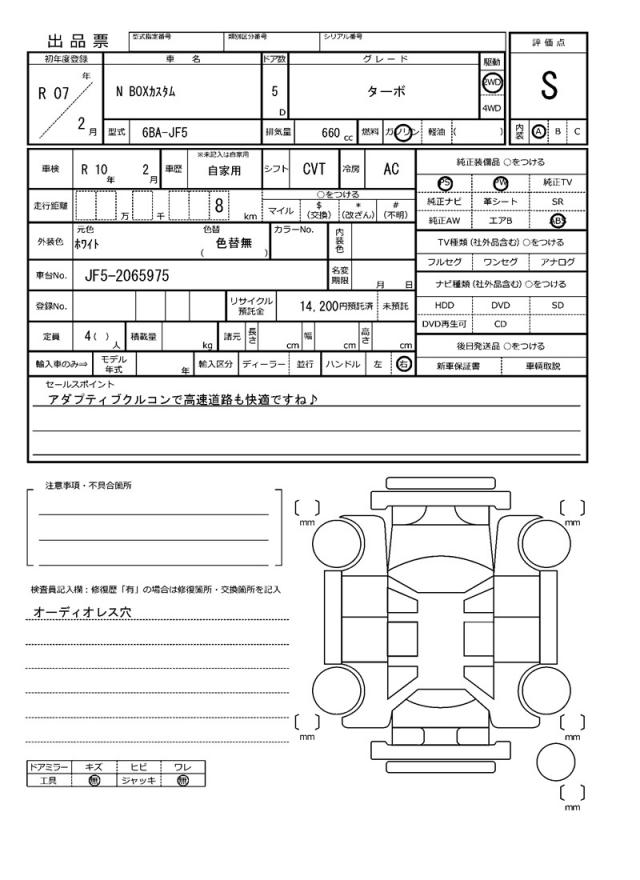 出品票
型式指定番号 類別区分番号 シリアル番号
初年度登録 車名 ドア数 グレード 駆動 評価点
R 07 年 2 月 N BOXカスタム 5 D ターボ 2WD 4WD S
型式 6BA-JF5 排気量 660 cc 燃料 ガソリン 軽油 ( ) 内装 A B C
車検 R 10 年 2 月 車歴 ※未記入は自家用 自家用 シフト CVT 冷房 AC 純正装備品 ○をつける
PS PW 純正TV
走行距離 万 千 8 km ○をつける 純正ナビ 革シート SR
マイル $ (交換) * (改ざん) # (不明) 純正AW エアB ABS
外装色 元色 ホワイト 色替 ( 色替無 ) カラーNo. 内装色 TV種類 (社外品含む) ○をつける
フルセグ ワンセグ アナログ
車台No. JF5-2065975 名変期限 月 日 ナビ種類 (社外品含む) ○をつける
登録No. リサイクル預託金 14,200円預託済 未預託 HDD DVD SD
DVD再生可 CD
定員 4 ( ) 人 積載量 kg 諸元 長さ cm 幅 cm 高さ cm 後日発送品 ○をつける
輸入車のみ⇒ モデル年式 年 輸入区分 ディーラー 並行 ハンドル 左 右 新車保証書 車輌取説
セールスポイント
アダプティブクルコンで高速道路も快適ですね♪
注意事項・不具合箇所
mm mm
検査員記入欄：修復歴「有」の場合は修復箇所・交換箇所を記入
オーディオレス穴
mm mm
ドアミラー キズ ヒビ ワレ
工具 無 ジャッキ 無
mm